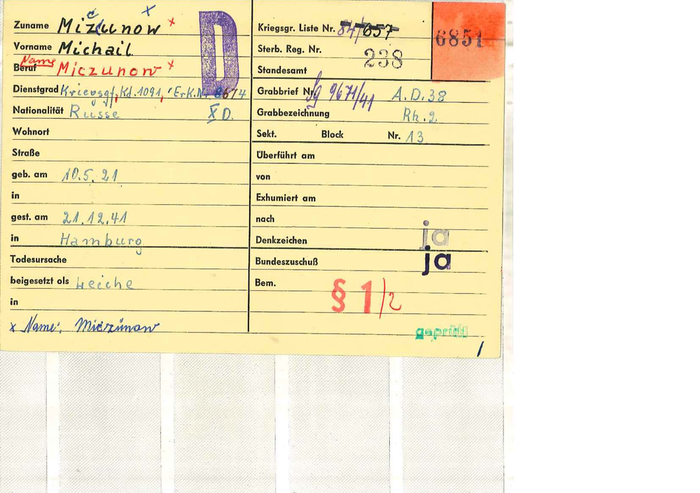 Zuname Mižunow x
Vorname Michail
Name
Beruf Miczunow x
Dienstgrad Kriegsgf. Kd. 1091, Erk.Nr. 8674
Nationalität Russe X D.
Wohnort
Straße
geb. am 10.5.21
in
gest. am 21.12.41
in Hamburg
Todesursache
beigesetzt als Leiche
in
x Name: Miczunow
D
Kriegsgr. Liste Nr. 057
Sterb. Reg. Nr. 238
Standesamt
Grabbrief Nr. 9671/41 A.D.38
Grabbezeichnung Rh.2
Sekt. Block Nr. 13
Überführt am
von
Exhumiert am
nach
Denkzeichen ja
Bundeszuschuß ja
Bem. § 1/2
geprüft
6851